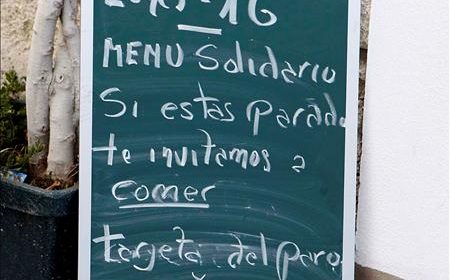 -16
MENU Solidario
Si estas parado
te invitamos a
comer
tarjeta del paro